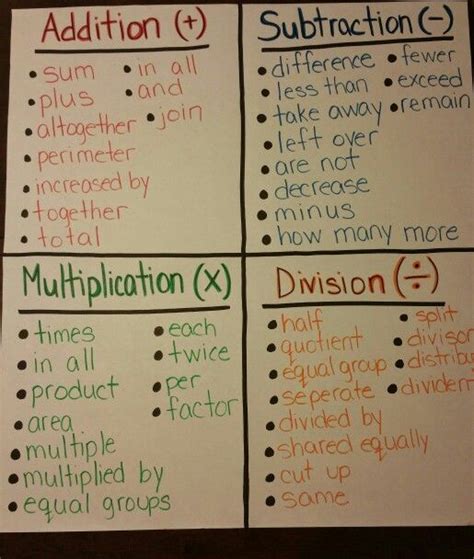 Addition (+)
• sum • in all
• plus • and
• altogether • join
• perimeter
• increased by
• together
• total
Subtraction (-)
• difference • fewer
• less than • exceed
• take away • remain
• left over
• are not
• decrease
• minus
• how many more
Multiplication (x)
• times • each
• in all • twice
• product • per
• area • factor
• multiple
• multiplied by
• equal groups
Division (÷)
• half • split
• quotient • divisor
• equal group • distrib
• seperate • dividen
• divided by
• shared equally
• cut up
• same